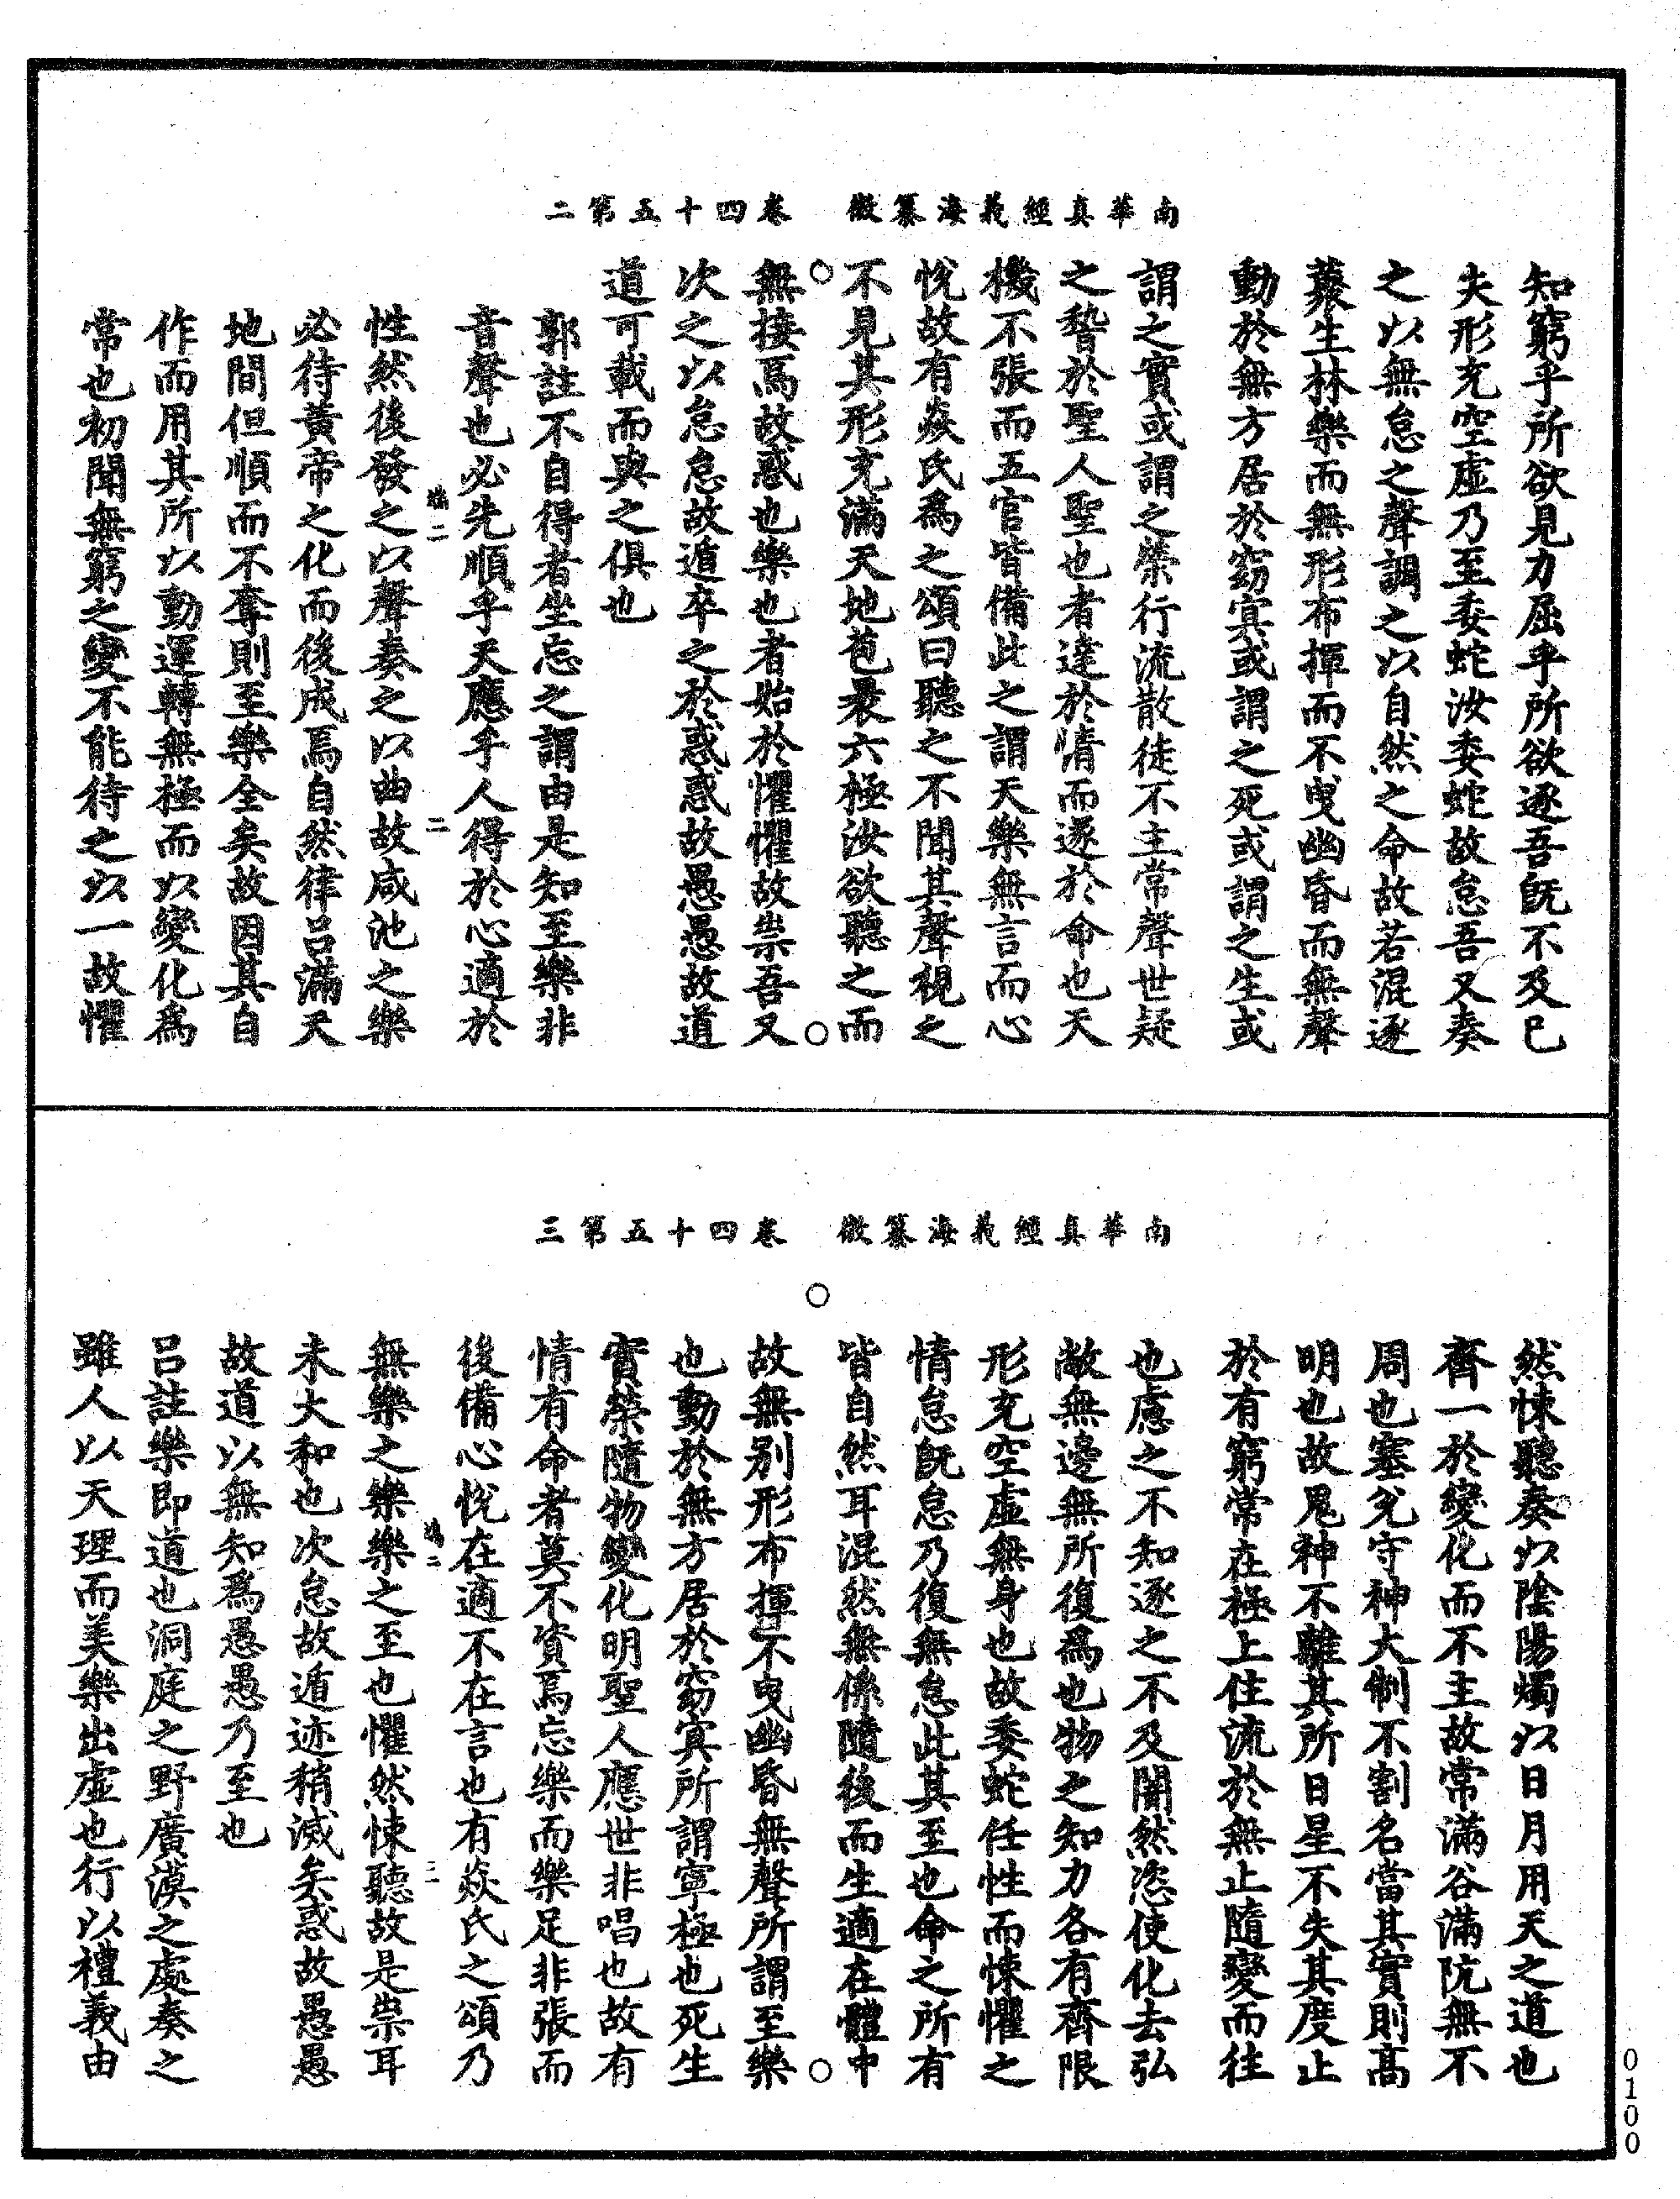 南華真經義海纂微　卷四十五第二
知窮乎所欲見力屈乎所欲逐吾既不及已
夫形充空虛乃至委蛇汝委蛇故怠吾又奏
之以無怠之聲調之以自然之命故若混逐
藂生林樂而無形布揮而不曳幽昏而無聲
動於無方居於窈冥或謂之死或謂之生或
謂之實或謂之榮行流散徙不主常聲世疑
之稽於聖人聖也者達於情而遂於命也天
機不張而五官皆備此之謂天樂無言而心
悅故有焱氏為之頌曰聽之不聞其聲視之
不見其形充滿天地苞裹六極汝欲聽之而
無接焉故惑也樂也者始於懼懼故祟吾又
次之以怠怠故遁卒之於惑惑故愚愚故道
道可載而與之俱也
郭註不自得者坐忘之謂由是知至樂非
音聲也必先順乎天應乎人得於心適於
二
性然後發之以聲奏之以曲故咸池之樂
必待黃帝之化而後成焉自然律呂滿天
地間但順而不奪則至樂全矣故因其自
作而用其所以動運轉無極而以變化為
常也初聞無窮之變不能待之以一故懼
南華真經義海纂微　卷四十五第三
然悚聽奏以陰陽燭以日月用天之道也
齊一於變化而不主故常滿谷滿阬無不
周也塞兌守神大制不割名當其實則高
明也故鬼神不離其所日星不失其度止
於有窮常在極上住流於無止隨變而往
也慮之不知逐之不及闇然恣使化去弘
敞無邊無所復為也物之知力各有齊限
形充空虛無身也故委蛇任性而悚懼之
情怠既怠乃復無怠此其至也命之所有
皆自然耳混然無係隨後而生適在體中
故無別形布揮不曳幽昏無聲所謂至樂
也動於無方居於窈冥所謂寧極也死生
實榮隨物變化明聖人應世非唱也故有
情有命者莫不資焉忘樂而樂足非張而
後備心悅在適不在言也有焱氏之頌乃
三
無樂之樂樂之至也懼然悚聽故是祟耳
未大和也次怠故遁迹稍滅矣惑故愚愚
故道以無知為愚愚乃至也
呂註樂即道也洞庭之野廣漠之處奏之
雖人以天理而美樂出虛也行以禮義由
0100